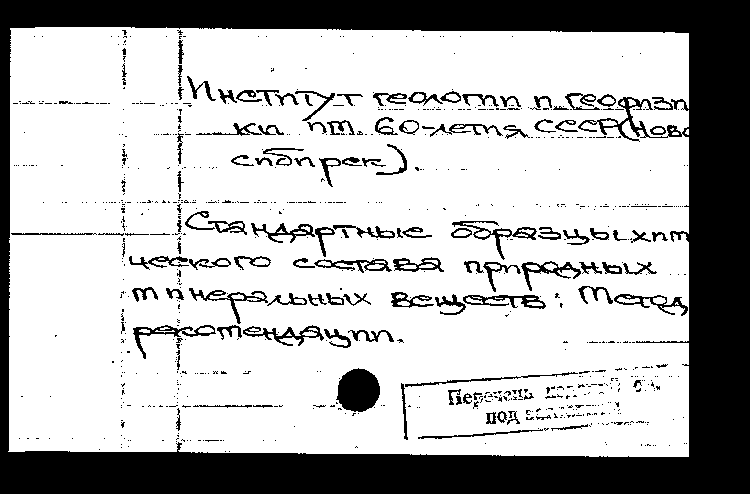 Институт геологии и геофизи
ки им. 60-летия СССР (Ново
сибирск).
Стандартные образцы хим
ческого состава природных
минеральных веществ: Метод
рекомендации.
Перечень
под